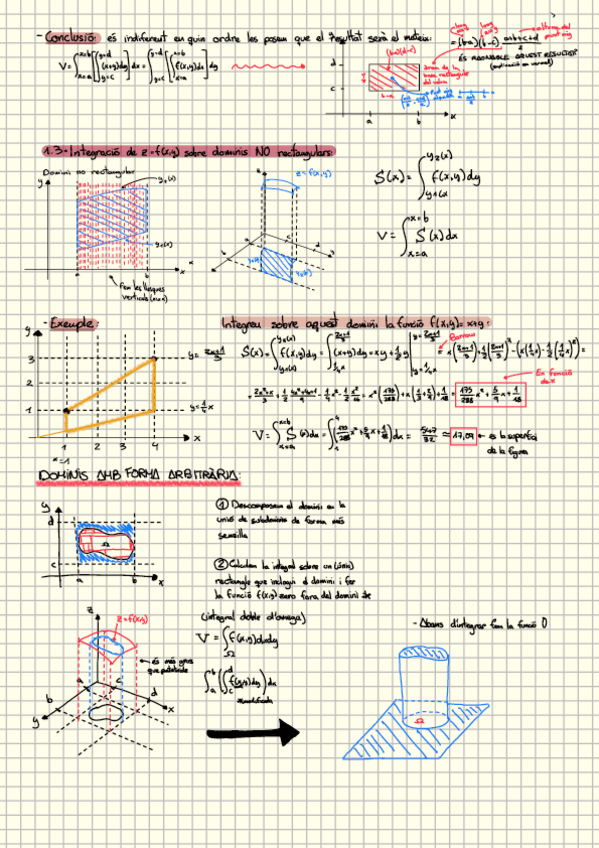 - Conclusió: és indiferent en quin ordre les posem que el resultat serà el mateix:
V = ∫x=a x=b [∫y=c y=d (x+y)dy] dx = ∫y=c y=d [∫x=a x=b f(x,y)dx] dy
= (b-a)(d-c) · (a+b+c+d)/2
ÉS RAONABLE AQUEST RESULTAT?
(b-a)(d-c)
àrea de la base rectangular
d
c
b-a
a b x
1.3.- Integració de z=f(x,y) sobre dominis NO rectangulars:
Domini no rectangular
y
y₂(x)
y₁(x)
a b x
Fem les llesques
verticals
z=f(x,y)
S(x) = ∫y₁(x) y₂(x) f(x,y)dy
V = ∫x=a x=b S(x)dx
- Exemple:
Integreu sobre aquest domini la funció f(x,y)=x+y:
y
3
2
1
1 2 3 4 x
x=1
y = (2x+1)/3
y = ¼x
S(x) = ∫y₁(x) y₂(x) f(x,y)dy = ∫¼x (2x+1)/3 (x+y)dy = xy + ½y² |y=¼x y=(2x+1)/3 = x((2x+1)/3) + ½((2x+1)/3)² - (x(¼x) - ½(¼x)²) =
Barrow
En funció de x
= (2x²+x)/3 + ½ (4x²+4x+1)/9 - ¼x² - ½ x² = x²(175/288) + x(⅓+2/9) + 1/18 = 175/288 x² + 5/9 x + 1/18
V = ∫x=a x=b S(x)dx = ∫1 4 (175/288 x² + 5/9 x + 1/18)dx = 547/32 ≃ 17,09 ← és la superfície
de la figura
DOMINIS AMB FORMA ARBITRÀRIA:
y
d
c
Ω
a b x
① Descomposem el domini en la
unió de subdominis de forma més
senzilla
② Calculem la integral sobre un (únic)
rectangle que inclogui el domini i fer
la funció f(x,y) zero fora del domini
z
z=f(x,y)
és més gros
a c
b d
y x
(integral doble d')
V = ∫Ω f(x,y)dxdy
∫a b (∫c d f(x,y)dy)dx
modificada
- Abans d'integrar fem la funció 0
Ω